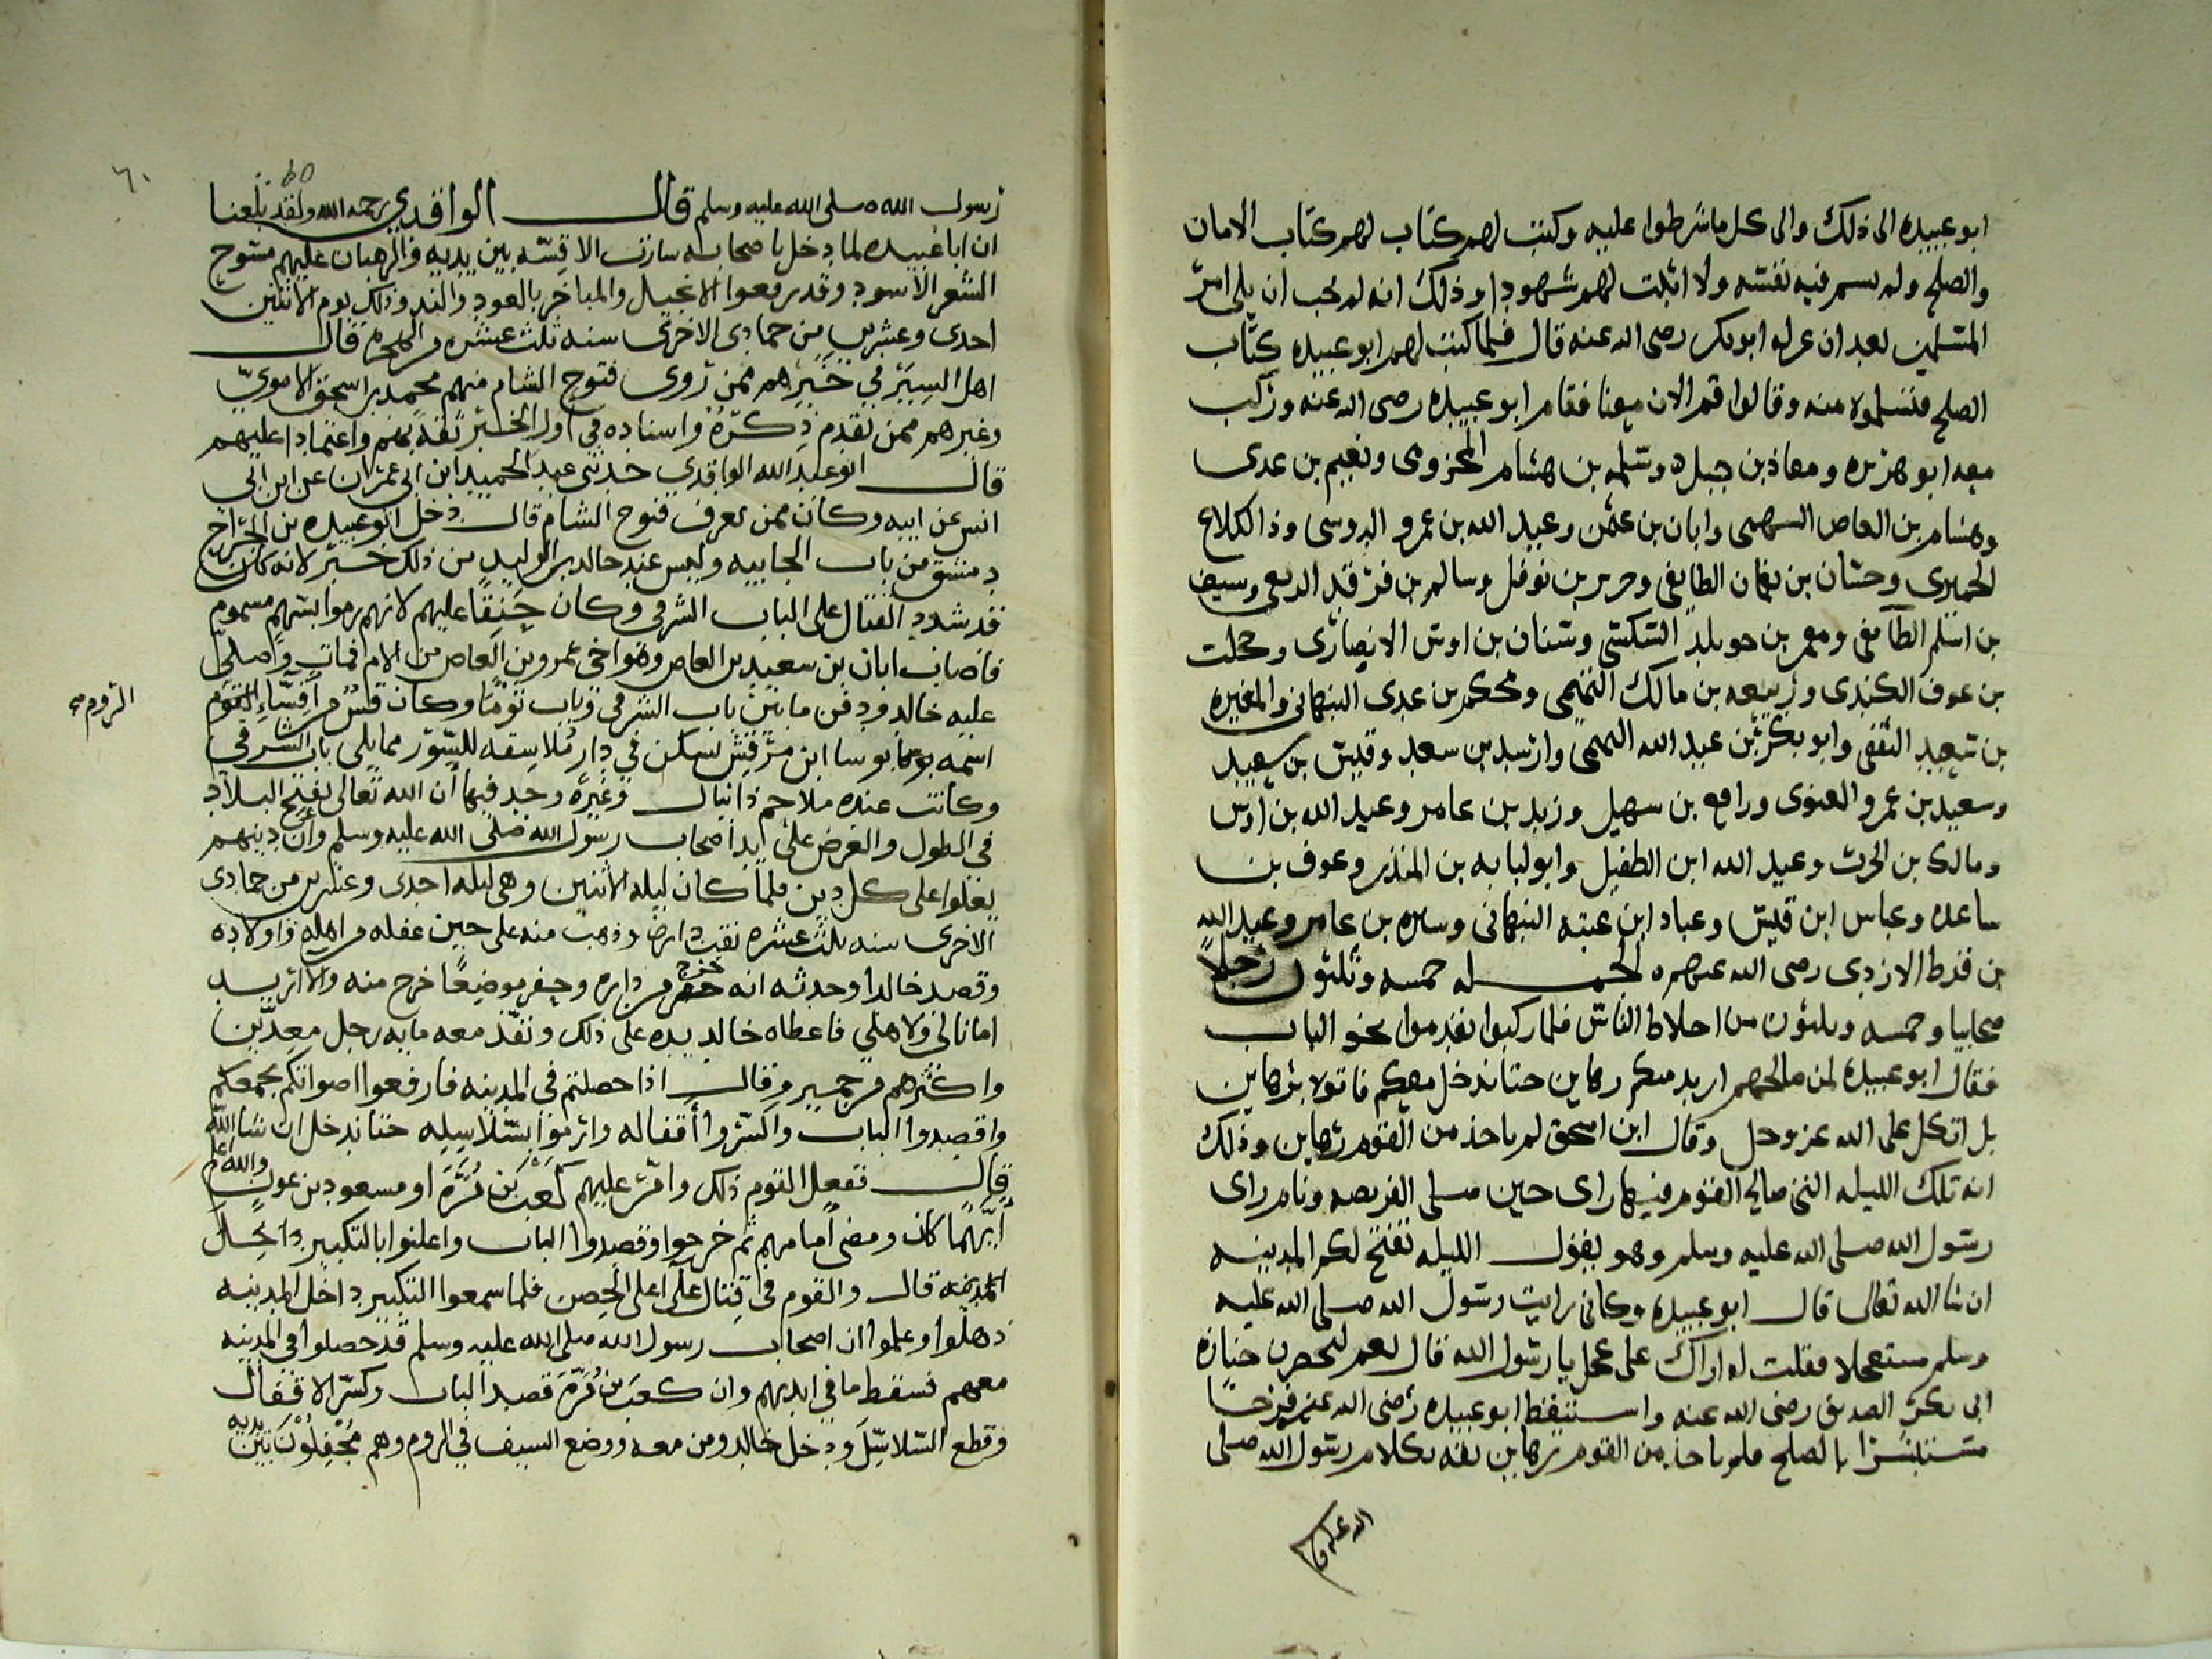 ابو عبيده الى ذلك والى كل ما شرطوا عليه وكتب لهم كتاب لهم كتاب الامان
والصلح ولم يسم فيه نفسه ولا اثبت لهم شهودا وذلك انه لم يحب ان يلى امر
المسلمين بعد ان عزله ابو بكر رضى الله عنه قال فلما كتب لهم ابو عبيده كتاب
الصلح فتسلموه منه وقالوا قم الان معنا فقام ابو عبيده رضى الله عنه وركب
معه ابو هريره ومعاذ بن جبل وسلمه بن هشام المخزومى ونعيم بن عدى
وهشام بن العاص السهمى وابان بن عثمن وعبد الله بن عمرو الدوسى وذا الكلاع
الحميرى وحسان بن نعمان الطايفى وجرير بن نوفل وسالم بن فرقد الربعى وسيف
بن اسلم الطآيفى ومعمر بن خويلد السكسكى وسنان بن اوس الانصارى ومحلت
بن عوف الكندى وربيعه بن مالك التميمى ومحكم بن عدى النبهانى والمغيره
بن سعيد الثقفى وابو بكر بن عبد الله التميمى وارشد بن سعد وقيس بن سعيد
وسعيد بن عمرو الغنوى ورافع بن سهيل وزيد بن عامر وعبد الله بن اوس
ومالك بن الحرث وعبد الله ابن الطفيل وابو لبابه بن المنذر وعوف بن
ساعده وعباس ابن قيس وعباد ابن عتبه النبهانى وساره بن عامر وعبد الله
بن قرط الازدى رضى الله عنهم الجمله خمسه وثلثون رجلا
صحابيا وخمسه وثلثون من اخلاط الناس فلما ركبوا تقدموا نحو الباب
فقال ابو عبيده لمن صالحهم اريد منكم رهاين حتا ندخل معكم فاتوه برهاين
بل اتكل على الله عز وجل وقال ابن اسحق لم ياخذ من القوم رهاين وذلك
انه تلك الليله التى صالح القوم فيها راى حين صلى الفريضه ونام راى
رسول الله صلى الله عليه وسلم وهو يقول الليله تفتح لكم المدينه
ان شا الله تعالى قال ابو عبيده وكانى رايت رسول الله صلى الله عليه
وسلم مستعجلا فقلت له اراك على عجل يا رسول الله قال نعم لنحضر جنازة
ابى بكر الصديق رضى الله عنه واستيقظ ابو عبيده رضى الله عنه فرحا
مستبشرا بالصلح فلم ياخذ من القوم رهاين ثقه بكلام رسول الله صلى
الله عليه وسلم
٦٠
رسول الله صلى الله عليه وسلم قال الواقدي رحمه الله ولقد بلغنا
ان ابا عبيده لما دخل باصحابه سارت الاقسه بين يديه والرهبان عليهم مسوح
الشعر الاسود وقد رفعوا الانجيل والمباخر بالعود والند وذلك يوم الاثنين
احدى وعشرين من جمادى الاخرى سنه ثلث عشره من الهجره قال
اهل السير في خبرهم ممن روى فتوح الشام منهم محمد بن اسحق الاموي
وغيرهم ممن تقدم ذكره واسناده في اول الخبر ثقة بهم واعتمادا عليهم
قال ابو عبد الله الواقدي حدثني عبد الحميد ابن ابى عمران عن ابن ابى
انس عن ابيه وكان ممن يعرف فتوح الشام قال دخل ابو عبيده بن الجراح
دمشق من باب الجابيه وليس عند خالد بن الوليد من ذلك خبر لانه كان
قد شدد القتال على الباب الشرقى وكان حنقا عليهم لانهم رموا بسهم مسموم
فاصاب ابان بن سعيد بن العاص وهو اخى عمرو بن العاص من الام فمات وصلى
عليه خالد ودفن ما بين باب الشرقى وباب توما وكان قس من اقساء القوم
الروم صح
اسمه يوسا ابن مرقش يسكن في دار ملاصقه للسور مما يلى باب الشرقى
وكانت عنده ملاحم دانيال وغيره وجد فيها ان الله تعالى يفتح البلاد
في الطول والعرض على يد اصحاب رسول الله صلى الله عليه وسلم وان دينهم
يعلوا على كل دين فلما كان ليله الاثنين وهى ليله احدى وعشرين من جمادى
الاخرى سنه ثلث عشره نقب داره وذهب منه على حين غفله من اهله واولاده
وقصد خالدا وحدثه انه خرج من داره وحفر موضعا خرج منه والان اريد
امانا لى ولاهلي فاعطاه خالد يده على ذلك ونفذ معه مايه رجل معدين
واكثرهم من حمير وقال اذا حصلتم في المدينه فارفعوا اصواتكم بجمعكم
واقصدوا الباب واكسروا أقفاله وارموا بسلاسله حتا ندخل ان شا الله
قال ففعل القوم ذلك وامر عليهم كعب بن مره او مسعود بن عون والله اعلم
أيهما كان ومضى امامهم ثم خرجوا وقصدوا الباب واعلنوا بالتكبير داخل
المدينه قال والقوم في قتال على اعلى الحصن فلما سمعوا التكبير داخل المدينه
ذهلوا وعلموا ان اصحاب رسول الله صلى الله عليه وسلم قد حصلوا في المدينه
معهم فسقط ما في ايديهم وان كعب بن مره قصد الباب وكسر الاقفال
وقطع السلاسل ودخل خالد ومن معه ووضع السيف في الروم وهم مجفلون بين يديه